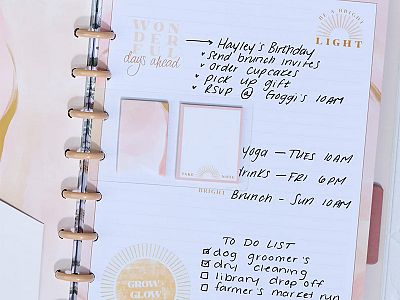 WON
DER
FUL
days ahead
BE A BRIGHT
LIGHT
→ Hayley's Birthday
• Send brunch invites
• Order cupcakes
• pick up gift
• RSVP @ Froggi's 10AM
TAKE NOTE
yoga — TUES 10AM
drinks — FRI 6PM
BRIGHT
Brunch - SUN 10AM
TO DO LIST
☑ dog groomer's
☑ dry cleaning
☐ library drop off
☐ farmer's market run
GROW
GLOW